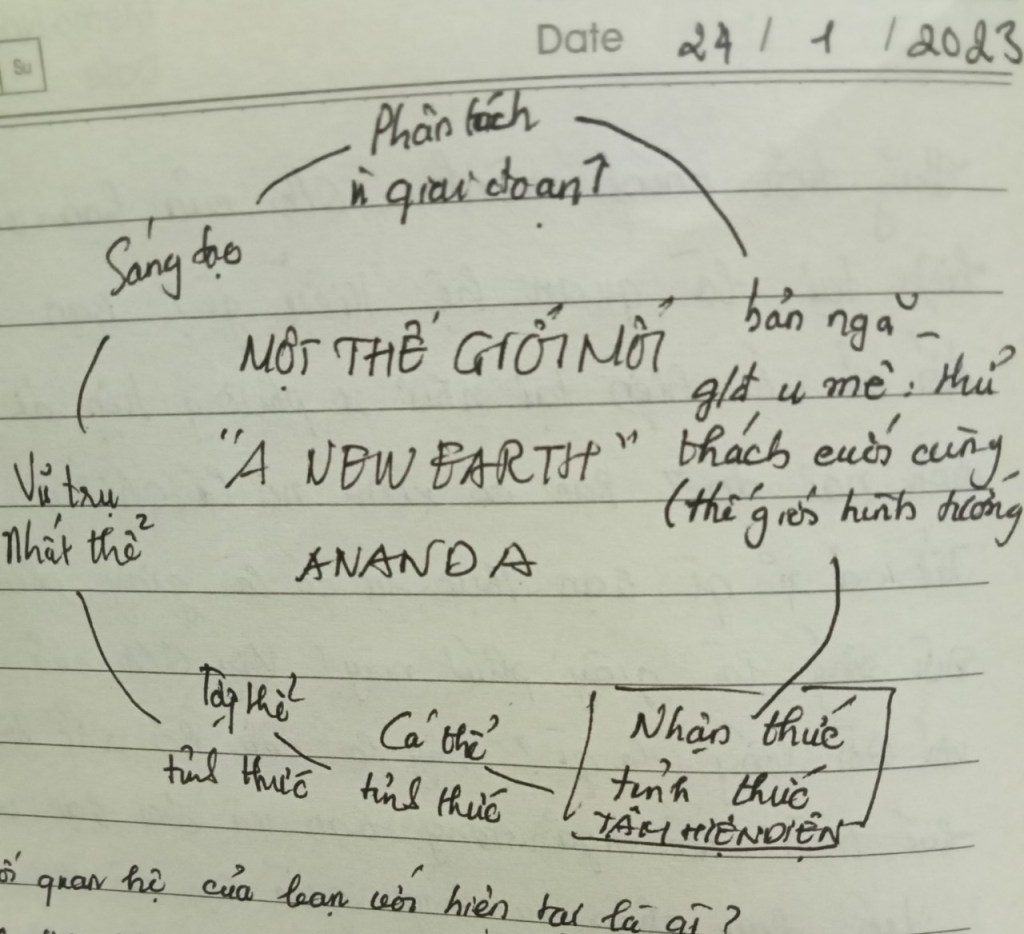 Su
Date 24 / 1 / 2023
Phân tách
giai đoạn
Sáng tạo
bản ngã -
MỘT THẾ GIỚI MỚI
g/đ u mê: thử
"A NEW EARTH"
thách cuối cùng
(thế giới hình tướng
Vũ trụ
Nhất thể
ANANDA
Tập thể
tỉnh thức
Cá thể
tỉnh thức
Nhận thức
tỉnh thức
TÂM HIỆN DIỆN
quan hệ của bạn với hiện tại là gì?